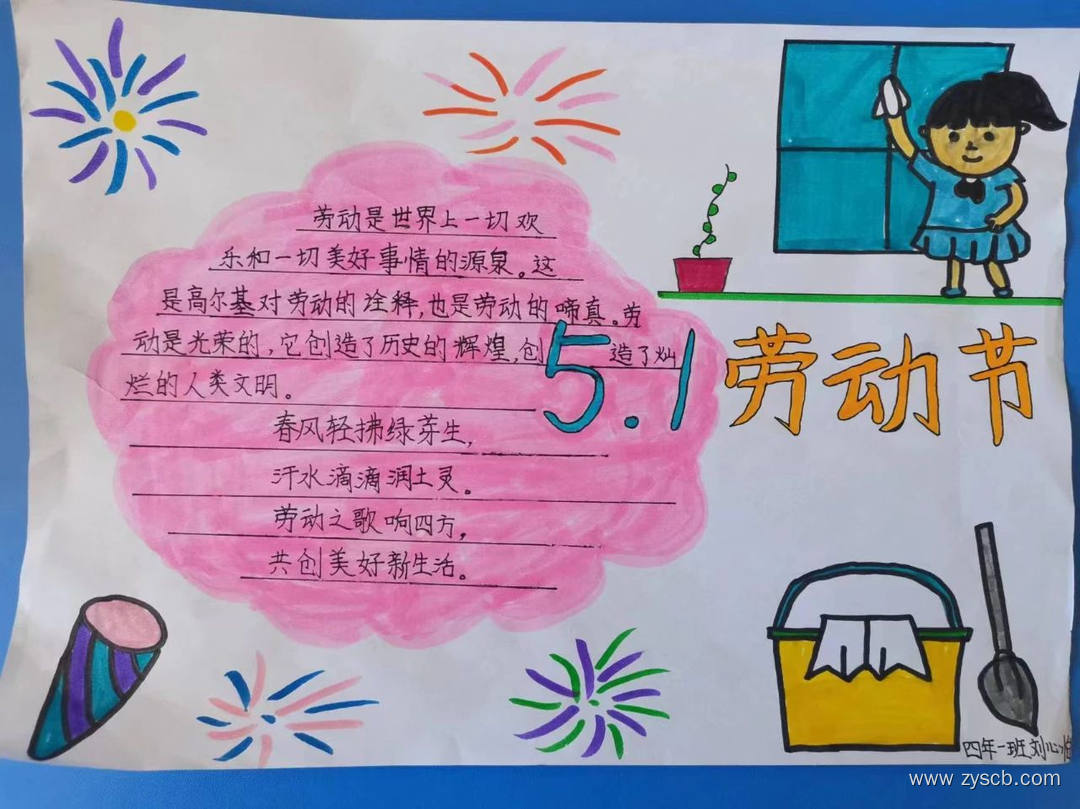 劳动是世界上一切欢
乐和一切美好事情的源泉。这
是高尔基对劳动的诠释,也是劳动的啼真。劳
动是光荣的,它创造了历史的辉煌,创造了灿
烂的人类文明。
春风轻拂绿芽生,
汗水滴滴润土灵。
劳动之歌响四方,
共创美好新生活。
5.1劳动节
四年一班刘心
www.zyscb.com